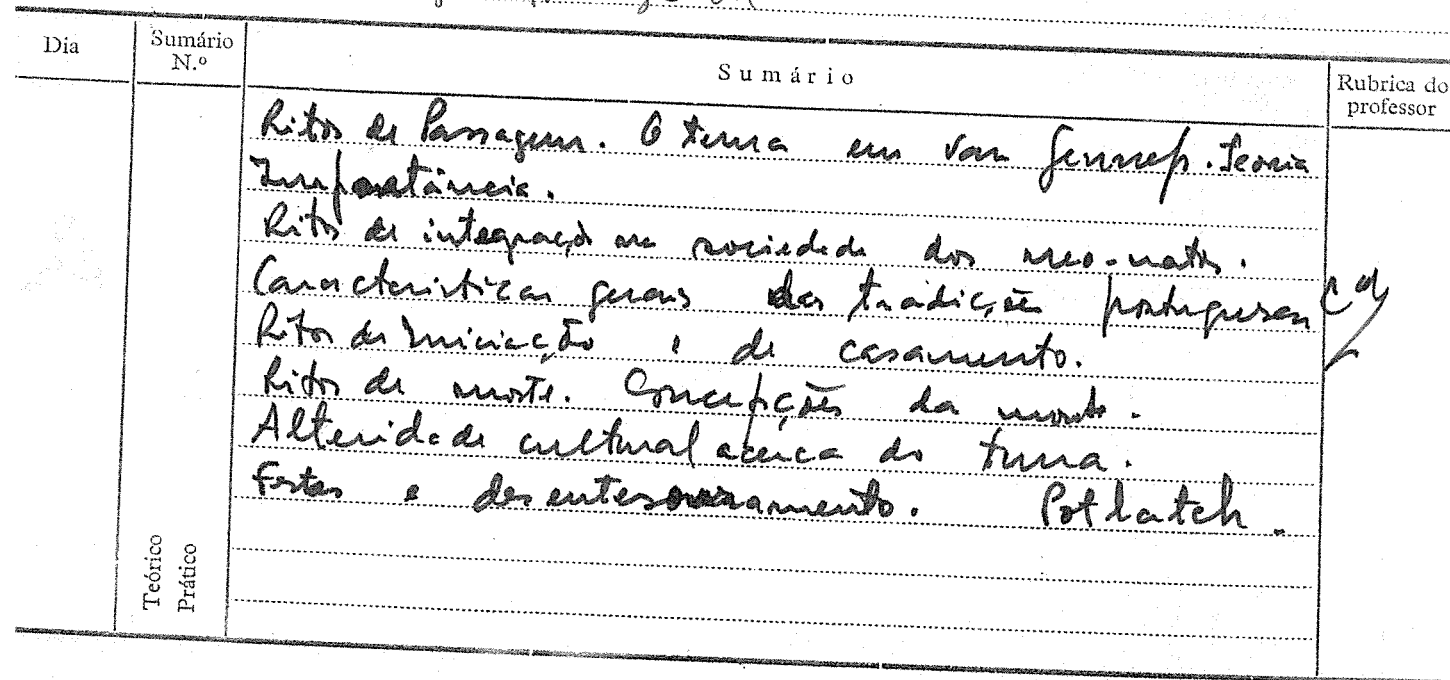 Dia
Sumário N.º
Sumário
Rubrica do professor
Ritos de Passagem. O tema em Van Gennep. Teoria
Importância.
Ritos de integração na sociedade dos neo-natos.
Características gerais das tradições portuguesas
Ritos de Iniciação e de casamento.
Ritos de morte. Concepções da morte.
Alteridade cultural acerca do tema.
Festas e desentesouramento. Potlatch.
Teórico
Prático